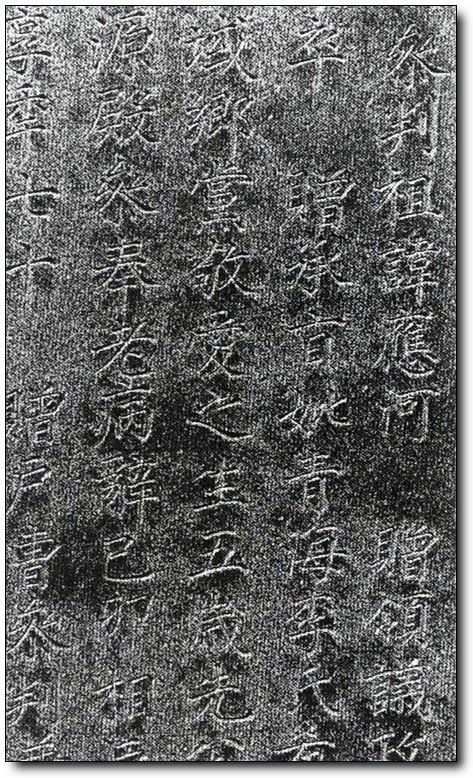 參判祖諱應河 贈領議政
卒 贈承旨妣青海李氏
域鄉黨敬愛之生五歲先
源殿參奉老病辭己卯
享年七十 贈戶曹參判